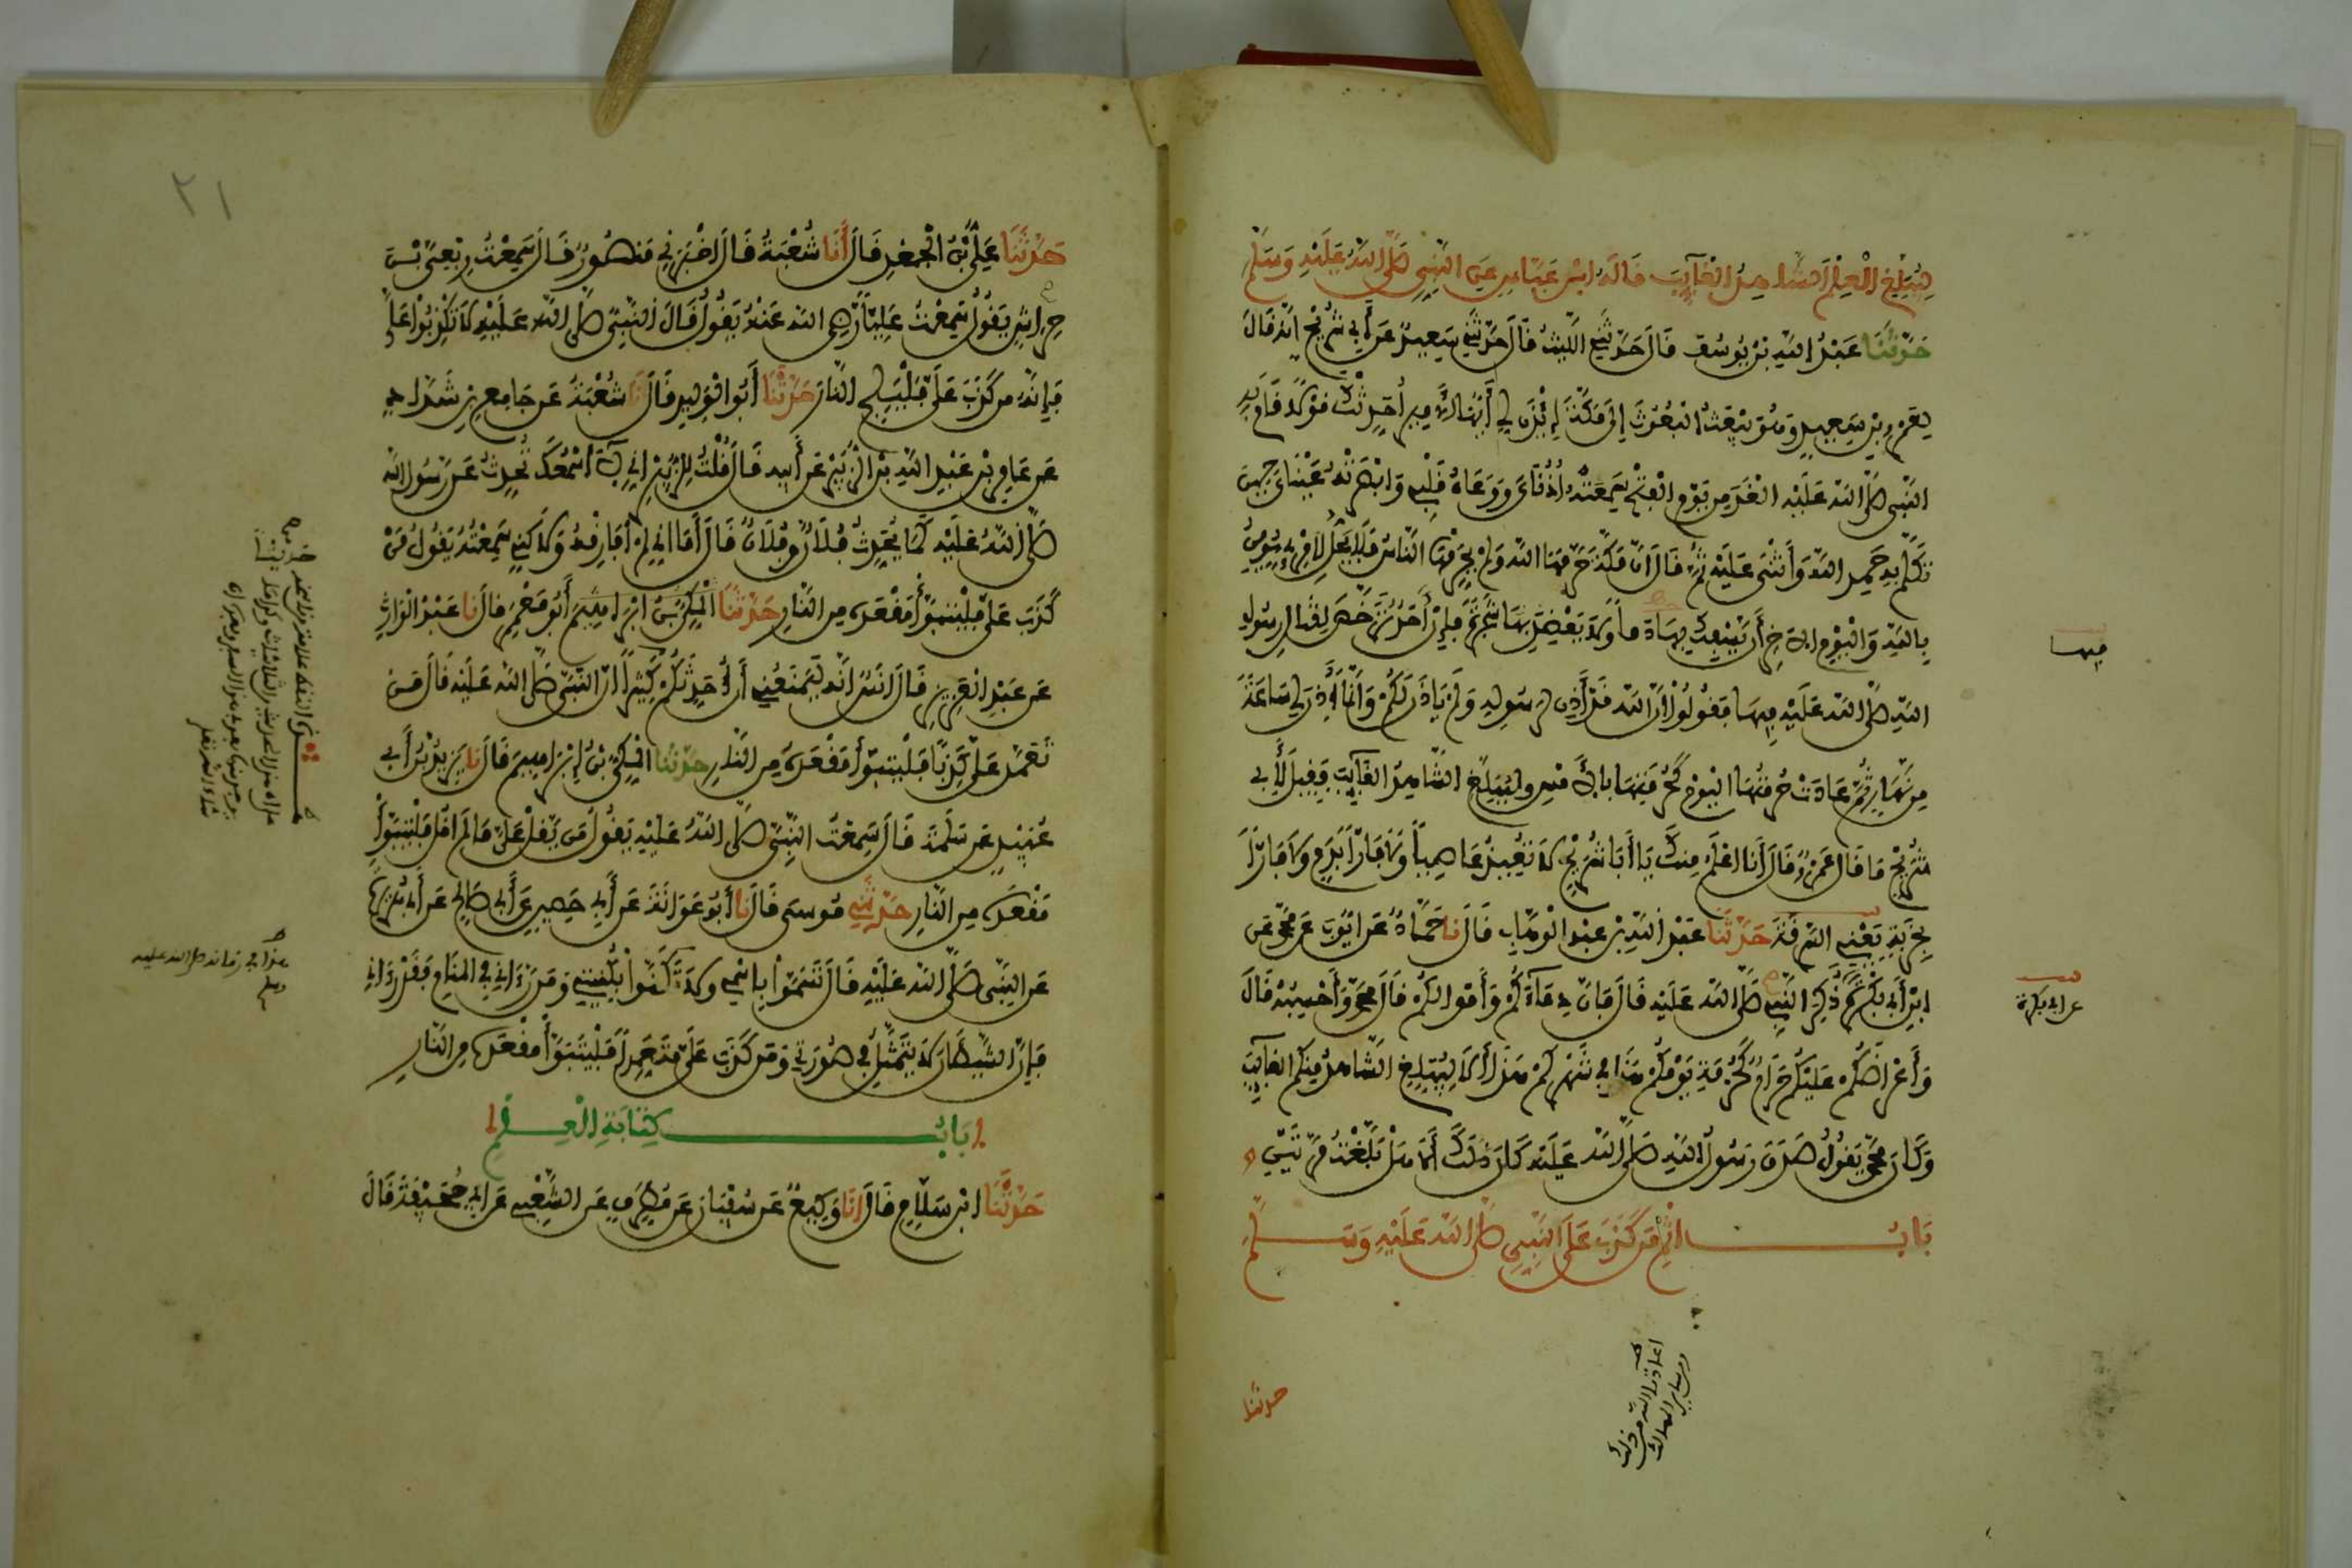 لِيُبَلِّغِ الْعِلْمَ الشَّاهِدُ الْغَائِبَ قَالَهُ ابْنُ عَبَّاسٍ عَنِ النَّبِيِّ صَلَّى اللهُ عَلَيْهِ وَسَلَّمَ
حَدَّثَنَا عَبْدُ اللهِ بْنُ يُوسُفَ قَالَ حَدَّثَنِي اللَّيْثُ قَالَ حَدَّثَنِي سَعِيدٌ عَنْ أَبِي شُرَيْحٍ أَنَّهُ قَالَ
لِعَمْرِو بْنِ سَعِيدٍ وَهُوَ يَبْعَثُ الْبُعُوثَ إِلَى مَكَّةَ إِئْذَنْ لِي أَيُّهَا الْأَمِيرُ أُحَدِّثْكَ قَوْلًا قَامَ بِهِ
النَّبِيُّ صَلَّى اللهُ عَلَيْهِ الْغَدَ مِنْ يَوْمِ الْفَتْحِ سَمِعَتْهُ أُذُنَايَ وَوَعَاهُ قَلْبِي وَأَبْصَرَتْهُ عَيْنَايَ حِينَ
تَكَلَّمَ بِهِ حَمِدَ اللهَ وَأَثْنَى عَلَيْهِ ثُمَّ قَالَ إِنَّ مَكَّةَ حَرَّمَهَا اللهُ وَلَمْ يُحَرِّمْهَا النَّاسُ فَلَا يَحِلُّ لِامْرِئٍ يُؤْمِنُ
بِاللهِ وَالْيَوْمِ الْآخِرِ أَنْ يَسْفِكَ بِهَا دَمًا وَلَا يَعْضِدَ بِهَا شَجَرَةً فَإِنْ أَحَدٌ تَرَخَّصَ لِقِتَالِ رَسُولِ
اللهِ صَلَّى اللهُ عَلَيْهِ فِيهَا فَقُولُوا إِنَّ اللهَ قَدْ أَذِنَ لِرَسُولِهِ وَلَمْ يَأْذَنْ لَكُمْ وَإِنَّمَا أَذِنَ لِي سَاعَةً
مِنْ نَهَارٍ ثُمَّ عَادَتْ حُرْمَتُهَا الْيَوْمَ كَحُرْمَتِهَا بِالْأَمْسِ وَلْيُبَلِّغِ الشَّاهِدُ الْغَائِبَ فَقِيلَ لِأَبِي
شُرَيْحٍ مَا قَالَ عَمْرٌو قَالَ أَنَا أَعْلَمُ مِنْكَ يَا أَبَا شُرَيْحٍ لَا تُعِيذُ عَاصِيًا وَلَا فَارًّا بِدَمٍ وَلَا فَارًّا
بِخَرْبَةٍ يَعْنِي السَّرِقَةَ حَدَّثَنَا عَبْدُ اللهِ بْنُ عَبْدِ الْوَهَّابِ قَالَ نَا حَمَّادٌ عَنْ أَيُّوبَ عَنْ مُحَمَّدٍ عَنِ
ابْنِ أَبِي بَكْرَةَ ذُكِرَ النَّبِيُّ صَلَّى اللهُ عَلَيْهِ قَالَ فَإِنَّ دِمَاءَكُمْ وَأَمْوَالَكُمْ قَالَ مُحَمَّدٌ وَأَحْسِبُهُ قَالَ
وَأَعْرَاضَكُمْ عَلَيْكُمْ حَرَامٌ كَحُرْمَةِ يَوْمِكُمْ هَذَا فِي شَهْرِكُمْ هَذَا أَلَا لِيُبَلِّغِ الشَّاهِدُ مِنْكُمُ الْغَائِبَ
وَكَانَ مُحَمَّدٌ يَقُولُ صَدَقَ رَسُولُ اللهِ صَلَّى اللهُ عَلَيْهِ كَانَ ذَلِكَ أَلَا هَلْ بَلَّغْتُ مَرَّتَيْنِ
بَابُ إِثْمِ مَنْ كَذَبَ عَلَى النَّبِيِّ صَلَّى اللهُ عَلَيْهِ وَسَلَّمَ
فيها
عن أبي بكرة
أعاذنا الله من ذلك
حدثنا
٢١
حَدَّثَنَا عَلِيُّ بْنُ الْجَعْدِ قَالَ أَنَا شُعْبَةُ قَالَ أَخْبَرَنِي مَنْصُورٌ قَالَ سَمِعْتُ رِبْعِيَّ بْنَ
حِرَاشٍ يَقُولُ سَمِعْتُ عَلِيًّا رَضِيَ اللهُ عَنْهُ يَقُولُ قَالَ النَّبِيُّ صَلَّى اللهُ عَلَيْهِ لَا تَكْذِبُوا عَلَيَّ
فَإِنَّهُ مَنْ كَذَبَ عَلَيَّ فَلْيَلِجِ النَّارَ حَدَّثَنَا أَبُو الْوَلِيدِ قَالَ نَا شُعْبَةُ عَنْ جَامِعِ بْنِ شَدَّادٍ
عَنْ عَامِرِ بْنِ عَبْدِ اللهِ بْنِ الزُّبَيْرِ عَنْ أَبِيهِ قَالَ قُلْتُ لِلزُّبَيْرِ إِنِّي لَا أَسْمَعُكَ تُحَدِّثُ عَنْ رَسُولِ اللهِ
صَلَّى اللهُ عَلَيْهِ كَمَا يُحَدِّثُ فُلَانٌ وَفُلَانٌ قَالَ أَمَا إِنِّي لَمْ أُفَارِقْهُ وَلَكِنِّي سَمِعْتُهُ يَقُولُ مَنْ
كَذَبَ عَلَيَّ فَلْيَتَبَوَّأْ مَقْعَدَهُ مِنَ النَّارِ حَدَّثَنَا أَبُو مَعْمَرٍ قَالَ نَا عَبْدُ الْوَارِثِ
عَنْ عَبْدِ الْعَزِيزِ قَالَ أَنَسٌ إِنَّهُ لَيَمْنَعُنِي أَنْ أُحَدِّثَكُمْ كَثِيرًا أَنَّ النَّبِيَّ صَلَّى اللهُ عَلَيْهِ قَالَ مَنْ
تَعَمَّدَ عَلَيَّ كَذِبًا فَلْيَتَبَوَّأْ مَقْعَدَهُ مِنَ النَّارِ حَدَّثَنَا الْمَكِّيُّ بْنُ إِبْرَاهِيمَ قَالَ نَا يَزِيدُ بْنُ أَبِي
عُبَيْدٍ عَنْ سَلَمَةَ قَالَ سَمِعْتُ النَّبِيَّ صَلَّى اللهُ عَلَيْهِ يَقُولُ مَنْ يَقُلْ عَلَيَّ مَا لَمْ أَقُلْ فَلْيَتَبَوَّأْ
مَقْعَدَهُ مِنَ النَّارِ حَدَّثَنِي مُوسَى قَالَ نَا أَبُو عَوَانَةَ عَنْ أَبِي حَصِينٍ عَنْ أَبِي صَالِحٍ عَنْ أَبِي هُرَيْرَةَ
عَنِ النَّبِيِّ صَلَّى اللهُ عَلَيْهِ قَالَ تَسَمَّوْا بِاسْمِي وَلَا تَكْتَنُوا بِكُنْيَتِي وَمَنْ رَآنِي فِي الْمَنَامِ فَقَدْ رَآنِي
فَإِنَّ الشَّيْطَانَ لَا يَتَمَثَّلُ فِي صُورَتِي وَمَنْ كَذَبَ عَلَيَّ مُتَعَمِّدًا فَلْيَتَبَوَّأْ مَقْعَدَهُ مِنَ النَّارِ
بَابُ كِتَابَةِ الْعِلْمِ
حَدَّثَنَا ابْنُ سَلَامٍ قَالَ أَنَا وَكِيعٌ عَنْ سُفْيَانَ عَنْ مُطَرِّفٍ عَنِ الشَّعْبِيِّ عَنْ أَبِي جُحَيْفَةَ قَالَ